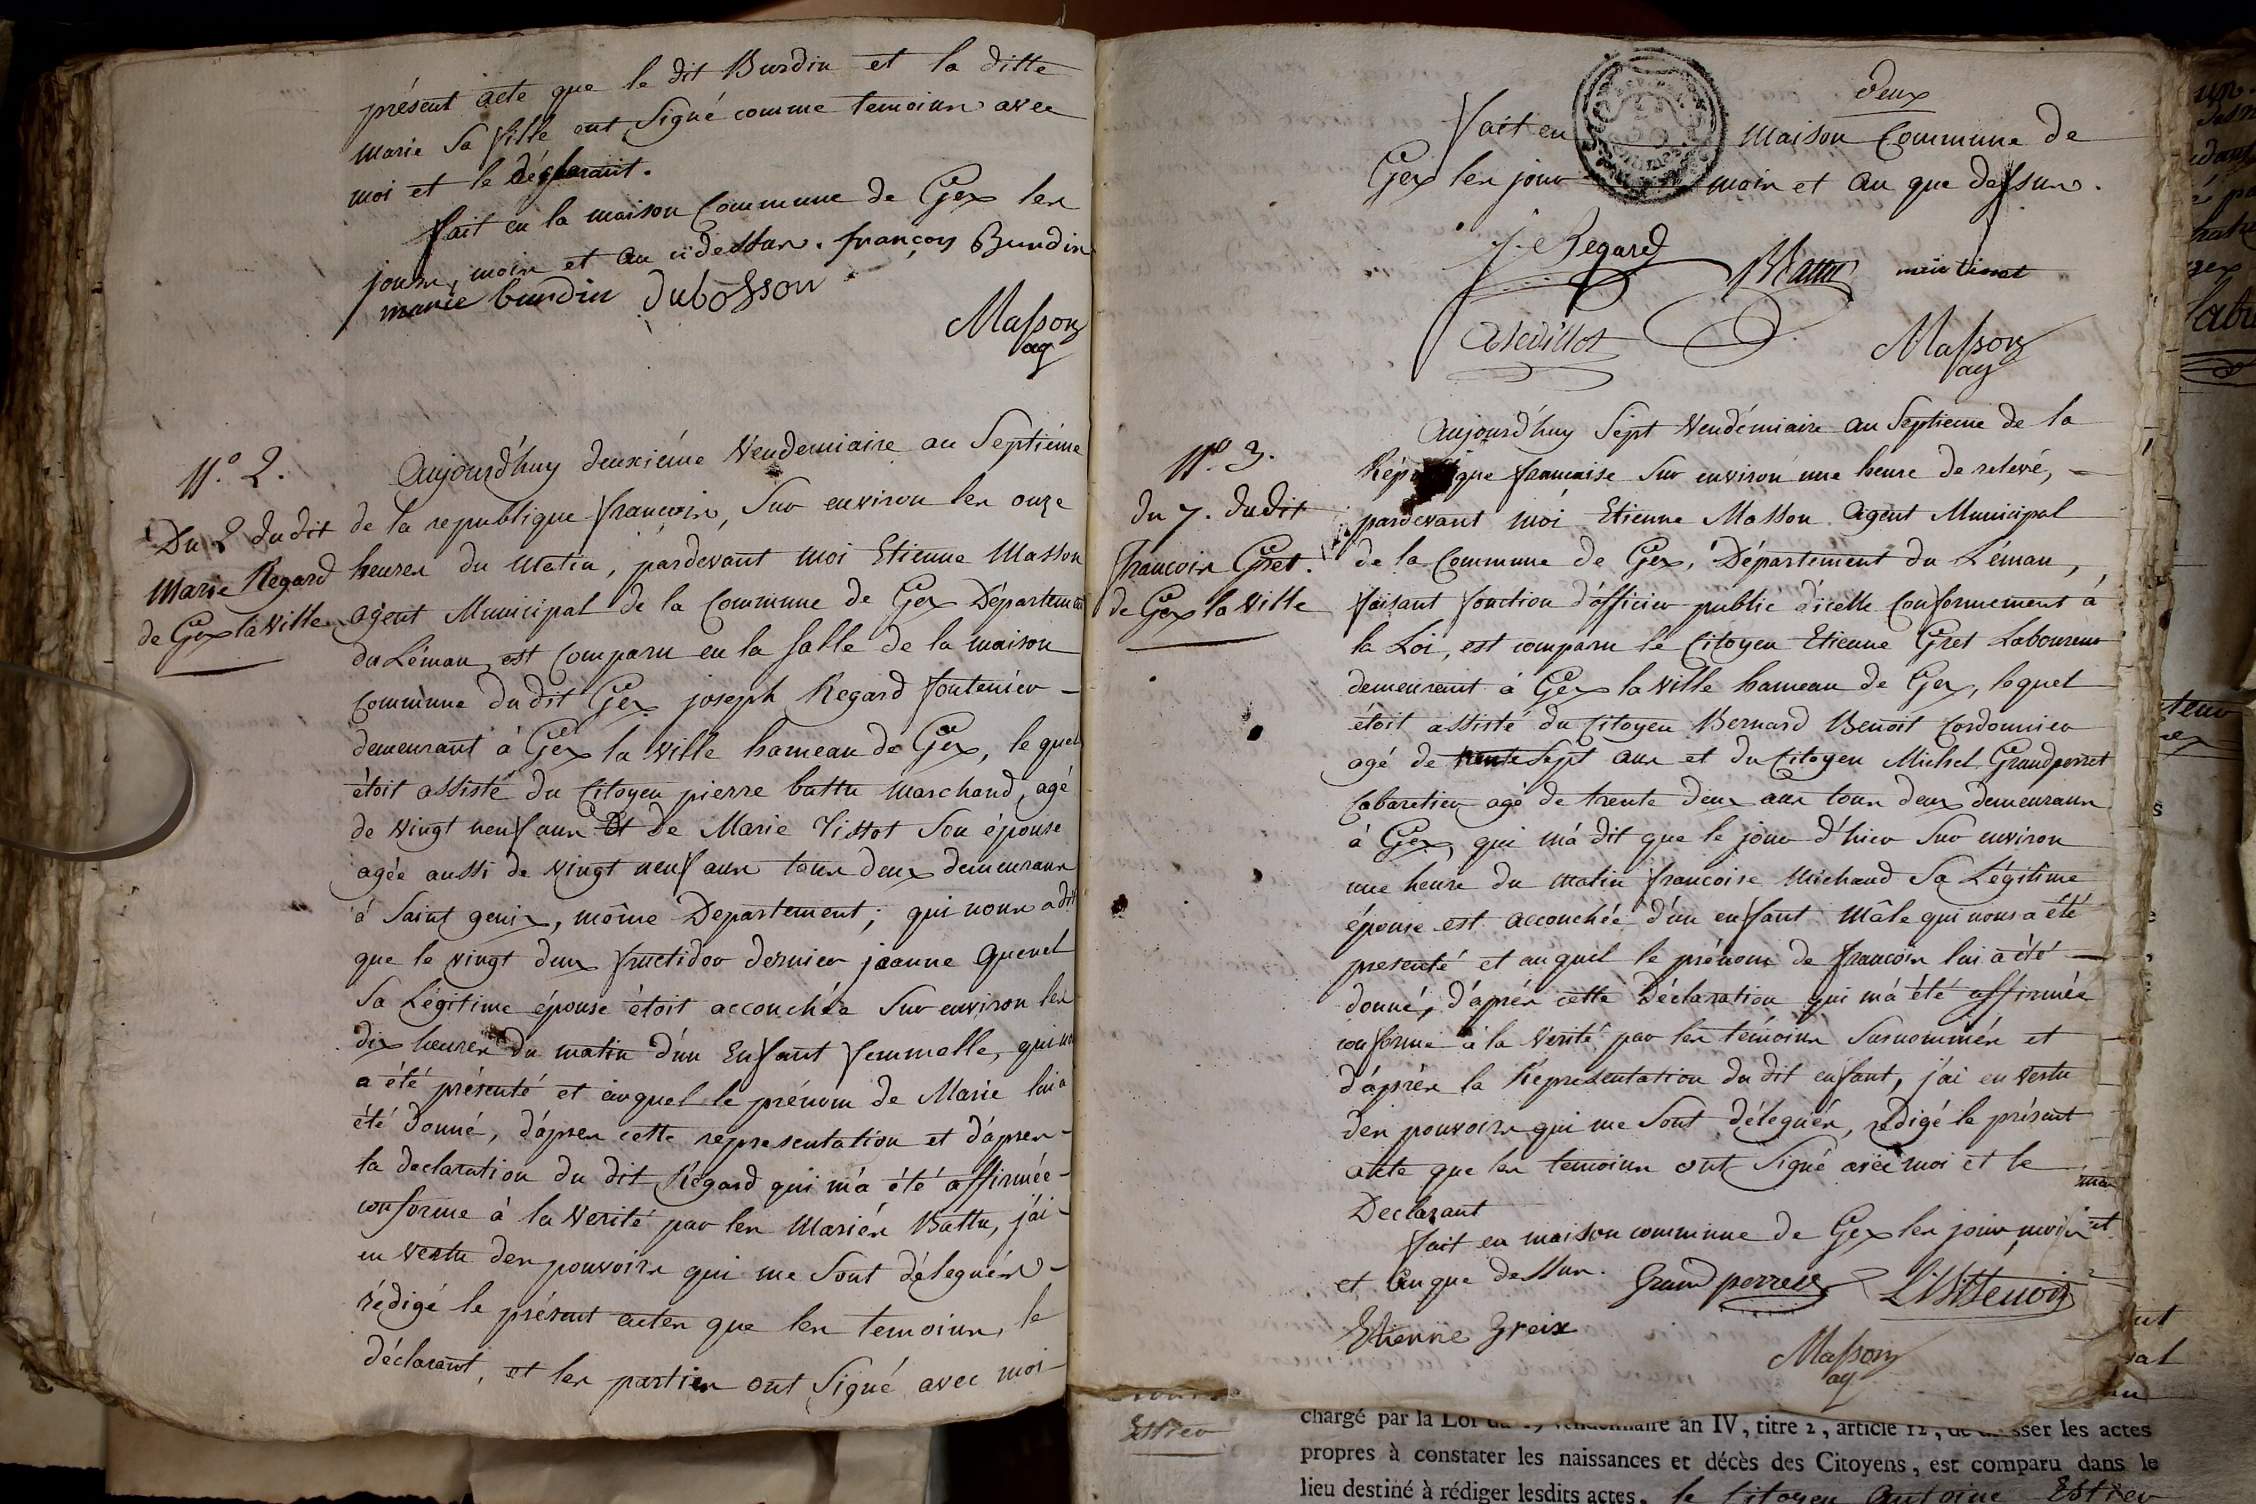 présent acte que le dit Burdin et la ditte
Marie Sa fille ont Signé comme temoins avec
moi et le déclarant.
fait en la maison Commune de Gex les
jours, mois et an cidessus. françoy Burdin
marie burdin Dubosson
Masson
ag
N.º 2.
Du 2 dudit
Marie Regard
de Gex la Ville
Aujourd'huy deuxiéme Vendemiaire an Septiéme
de la republique françois, Sur environ les onze
heures du Matin, pardevant moi Etienne Masson
agent Municipal de la Commune de Gex Département
du Léman, est Comparu en la Salle de la maison
Commune dudit Gex joseph Regard fontenier -
demeurant à Gex la Ville hameau de Gex, lequel
étoit assisté du Citoyen pierre battu Marchand, agé
de Vingt neuf ans Et de Marie Tissot Son épouse
agée aussi de Vingt neuf ans tous deux demeurans
à Saint genix, même Departement ; qui nous a dit
que le vingt deux fructidor dernier jeanne Quenel
Sa Légitime épouse étoit accouchée Sur environ les
dix heures du matin d'un Enfant femmelle, qui m'
a été présenté et auquel le prénom de Marie lui a
été donné, d'apres cette representation et d'apres -
la declaration du dit Regard qui m'a été affirmée -
conforme à la Verité par les Mariés Battu, j'ai -
en vertu des pouvoirs qui me Sont délegués -
rédigé le présent actes que les temoins, le
déclarant, et les parties ont Signé avec moi
deux
fait en maison Commune de
Gex les jour mois et an que dessus.
J. Regard Battu marie tissot
Masson
ag
N.º 3.
du 7. dudit
francois Gret.
de Gex la Ville
Aujourd'huy Sept Vendémiaire an Septieme de la
République francaise Sur environ une heure de relevé, -
pardevant moi Etienne Masson Agent Municipal
de la Commune de Gex, Département du Léman,
faisant fonction d'officier public d'icelle Conformement à
la Loi, est comparu le Citoyen Etienne Gret Laboureur
demeurant à Gex la Ville hameau de Gex, lequel
étoit assisté du Citoyen Bernard Benoit Cordonnier
agé de trente Sept ans et du Citoyen Michel Grandperret
Cabaretier agé de trente deux ans tous deux demeurans
à Gex, qui m'a dit que le jour d'hier Sur environ
une heure du Matin francoise Michaud Sa Légitime
épouse est accouchée d'un enfant Mâle qui nous a été
presenté et auquel le prénom de francois lui a été -
donné, d'après cette Déclaration qui m'a été affirmée
conforme à la Verité par les témoins Susnommés et
d'après la Représentation du dit enfant, j'ai en vertu
des pouvoirs qui me Sont délegués, redigé le présent
acte que les temoins ont Signé avec moi et le
Declarant
fait en maison commune de Gex les jour, mois et
et an que dessus. Grand perret
Etienne Greix
Masson
ag
chargé par la Loi du 19 vendemiaire an IV, titre 2, article 12, de dresser les actes
propres à constater les naissances et décès des Citoyens, est comparu dans le
lieu destiné à rédiger lesdits actes, le Citoyen Antoine Estier
Estier